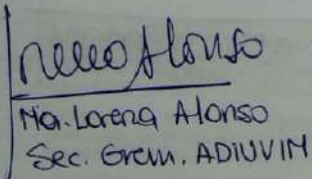 Alonso
Ma. Lorena Alonso
Sec. Grem. ADIUVIM